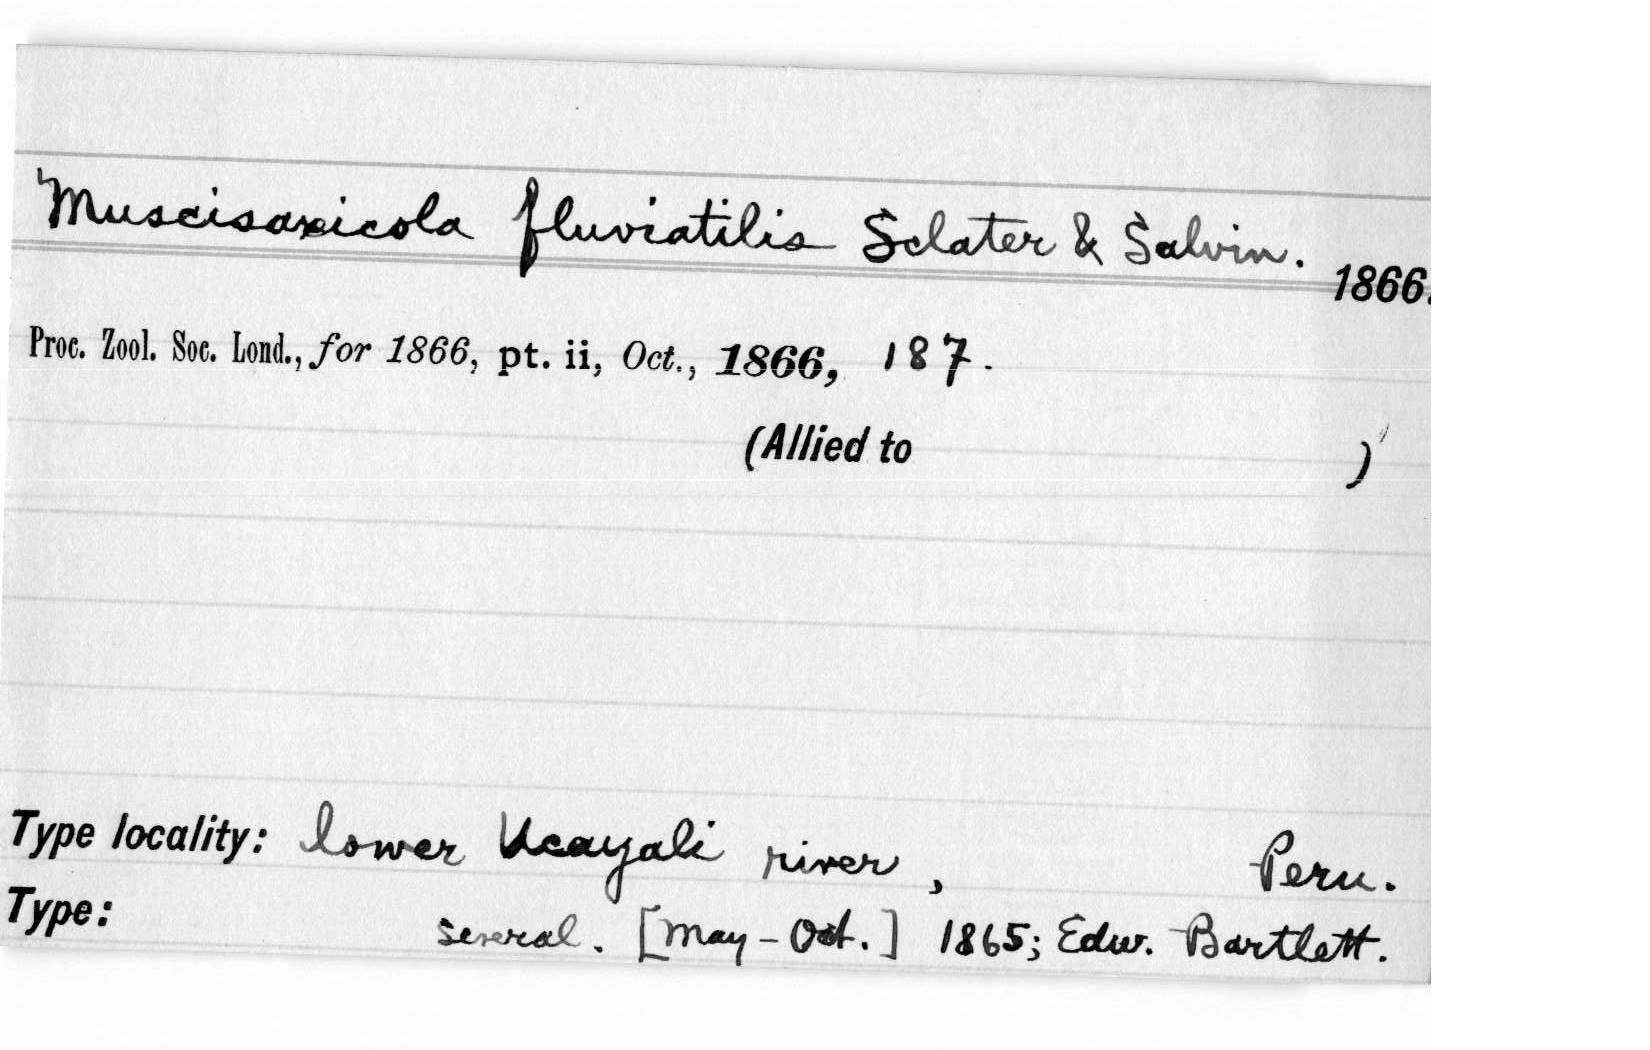 Muscisaxicola fluviatilis Sclater & Salvin. 1866.
Proc. Zool. Soc. Lond., for 1866, pt. ii, Oct., 1866, 187.
(Allied to )
Type locality: lower Ucayali river, Peru.
Type: several. [May – Oct.] 1865; Edw. Bartlett.